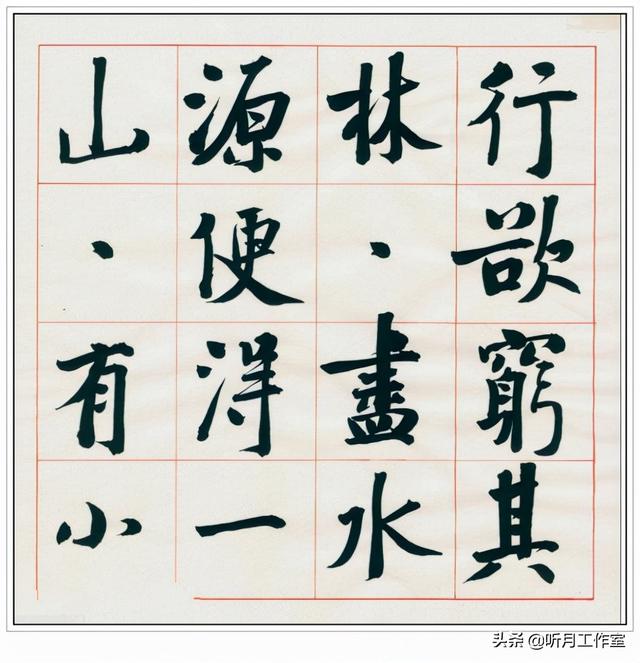 行欲窮其
林·盡水
源便得一
山·有小
头条 @听月工作室